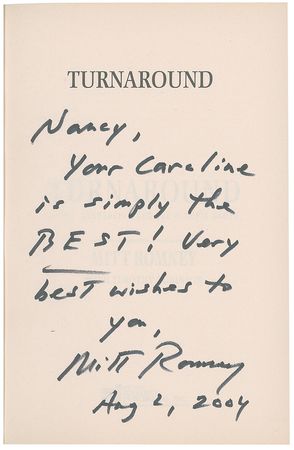 TURNAROUND
Nancy,
Your Caroline
is simply the
BEST! Very
best wishes to
you,
Mitt Romney
Aug 2, 2004
TURNAROUND
MITT ROMNEY